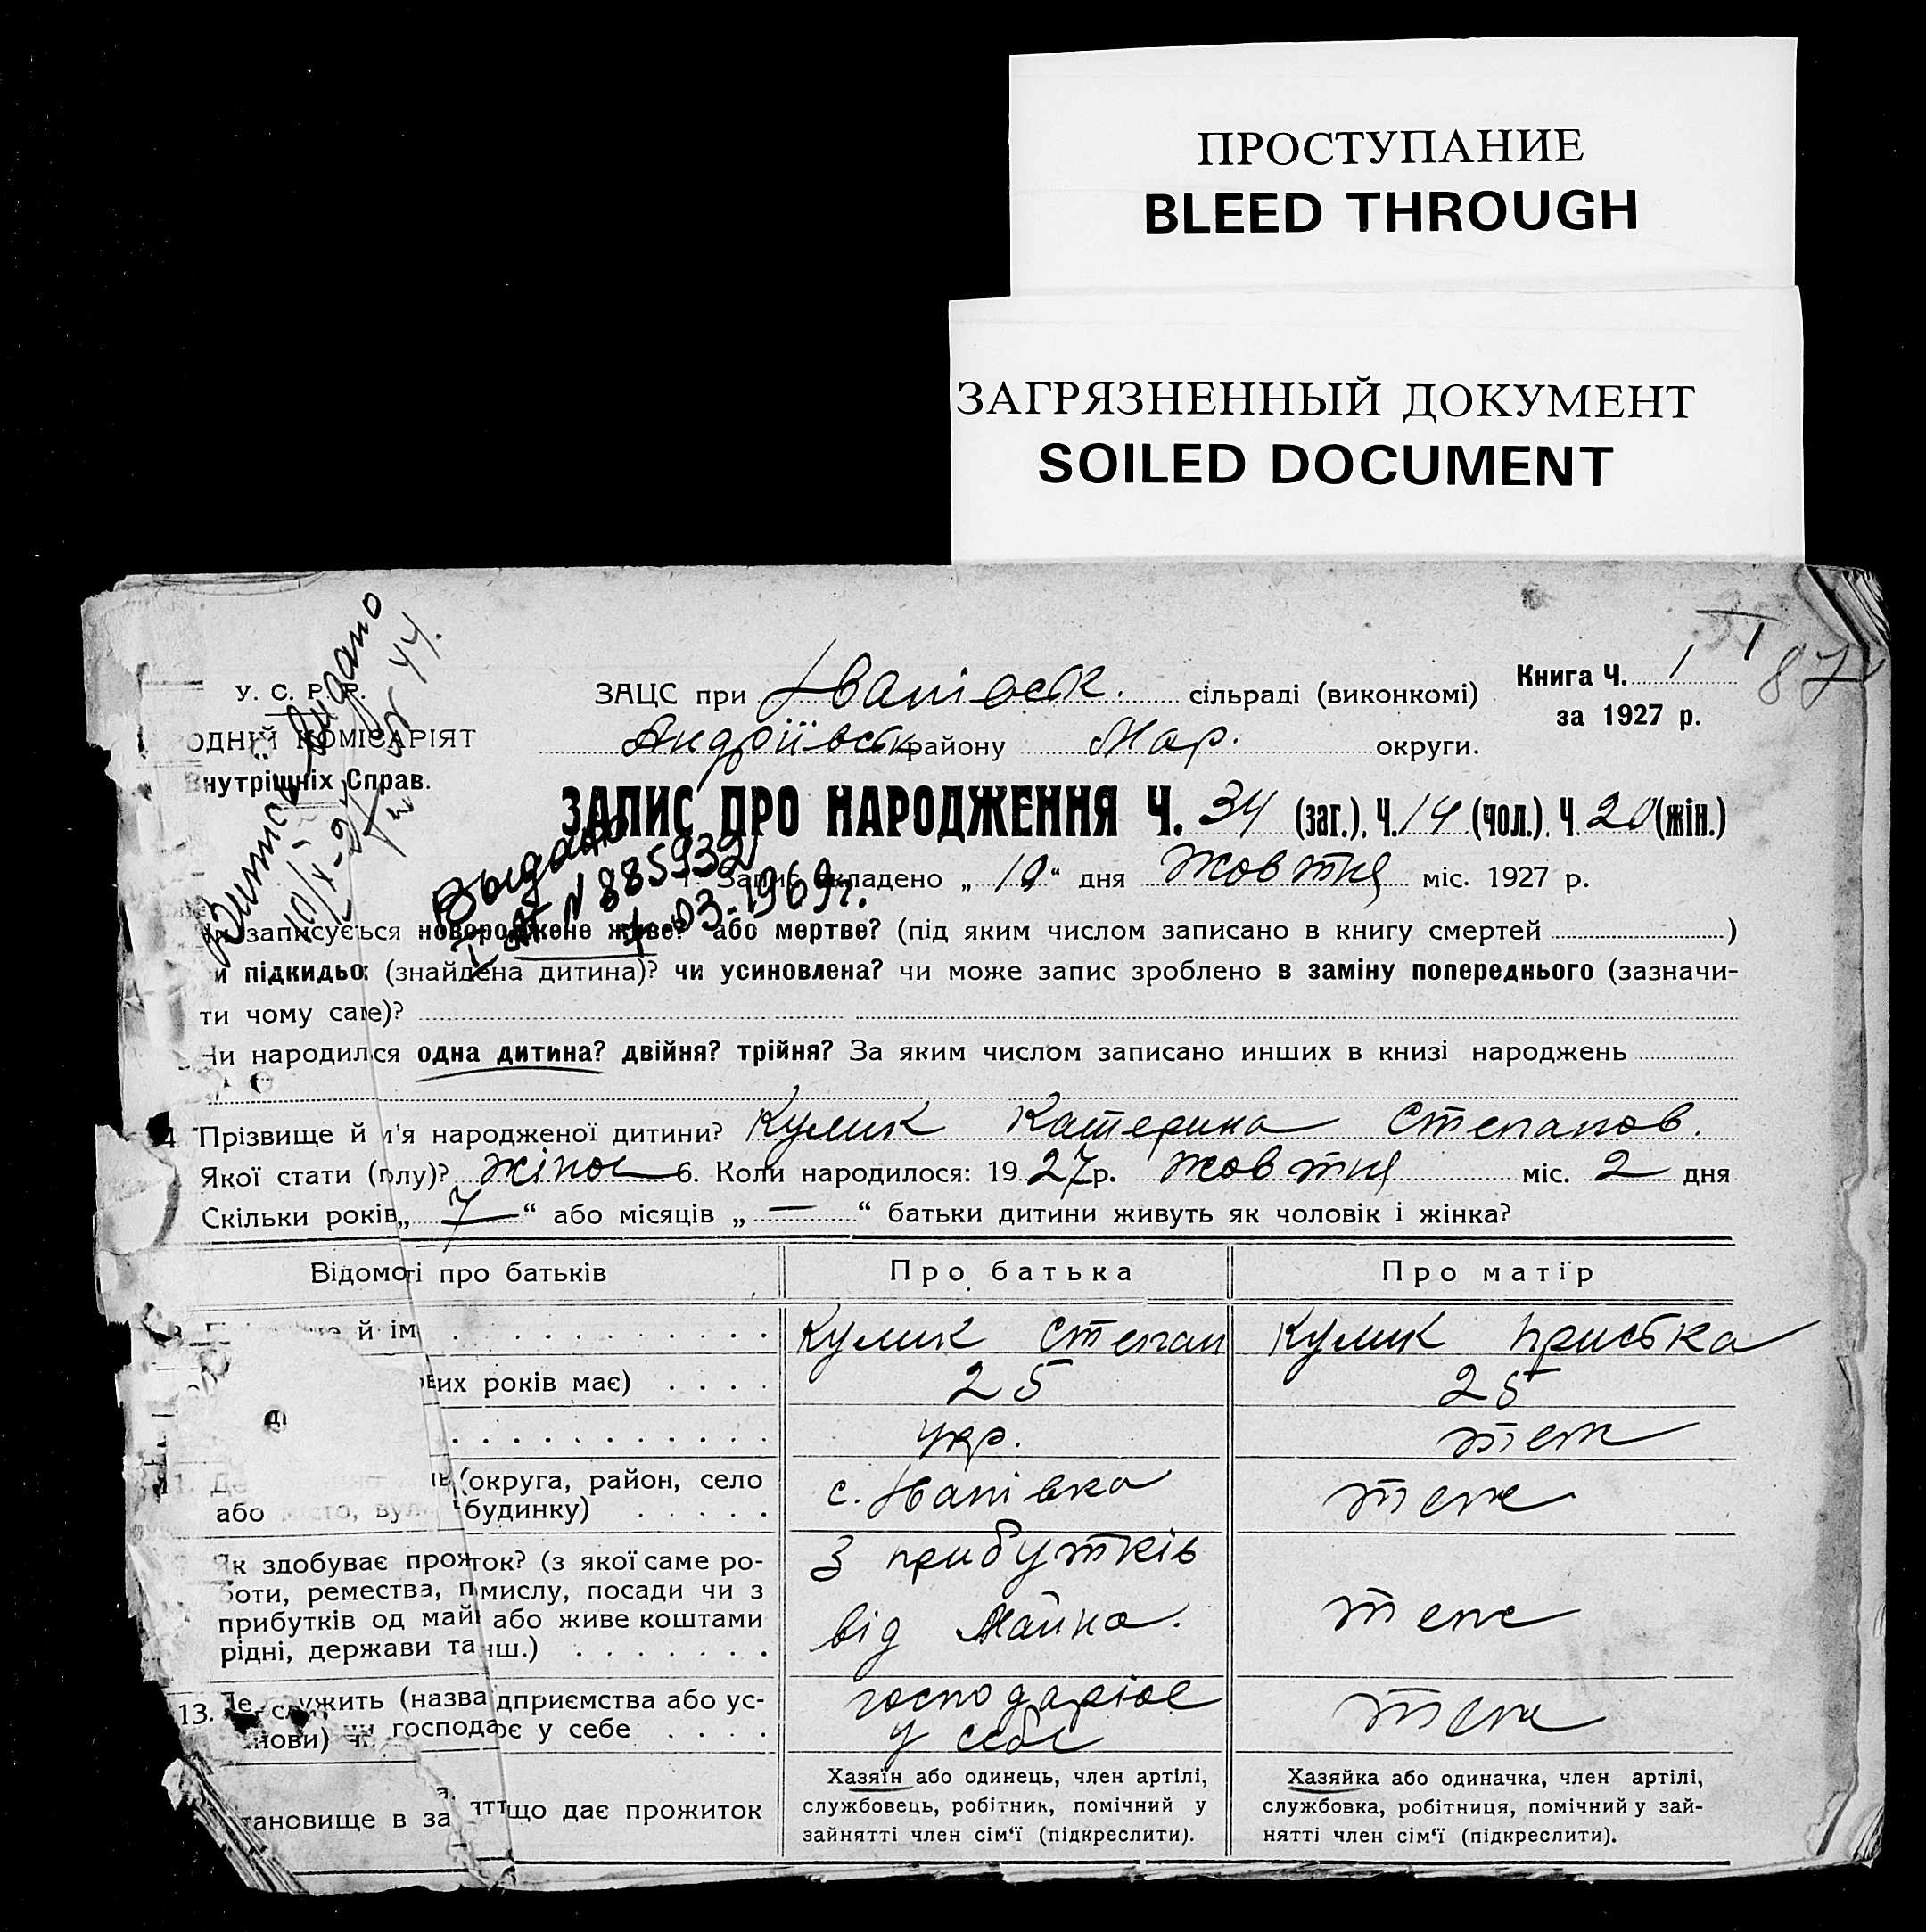 ПРОСТУПАНИЕ
BLEED THROUGH
ЗАГРЯЗНЕННЫЙ ДОКУМЕНТ
SOILED DOCUMENT
87
У. С. Р. Р.
ОДНІЙ КОМІСАРІЯТ
Внутрішніх Справ.
ЗАЦС при Іванівськ. сільраді (виконкомі)
Книга Ч. 1
за 1927 р.
Андріївськ району Мар. округи.
ЗАПИС ПРО НАРОДЖЕННЯ Ч. 34 (заг.), Ч. 14 (чол.). Ч 20 (жін.)
Выдано
№ 885932
03-1969г.
1. Запис складено „ 10 “ дня Жовтня міс. 1927 р.
записується новороджене живе? або мертве? (під яким числом записано в книгу смертей )
и підкидьо: (знайдена дитина)? чи усиновлена? чи може запис зроблено в заміну попереднього (зазначи-
ти чому саме)?
Чи народился одна дитина? двійня? трійня? За яким числом записано инших в книзі народжень
4. Прізвище й м'я народженої дитини? Кулик Катерина Степанов.
Якої стати (полу)? жіноє 6. Коли народилося: 1927 р. жовтня міс. 2 дня
Скільки років „ 7 “ або місяців „ — “ батьки дитини живуть як чоловік і жінка?
Відомоті про батьків Про батька Про матір
й ім Кулик Степан Кулик Приська
их років має) 25 25
укр. теж
(округа, район, село
або місто, вул. будинку) с. Іванівка теж
Як здобуває прожток? (з якої саме ро-
боти, ремества, пмислу, посади чи з
прибутків од май або живе коштами
рідні, держави та инш.)
З прибутків
від Майна.
теж
13. Де служить (назва дприємства або ус-
нови) чи господає у себе
господарює
у себе
теж
тановище в за що дає прожиток
Хазяїн або одинець, член артілі,
службовець, робітник, помічний у
зайнятті член сім'ї (підкреслити).
Хазяйка або одиначка, член артілі,
службовка, робітниця, помічний у зай-
нятті член сім'ї (підкреслити).